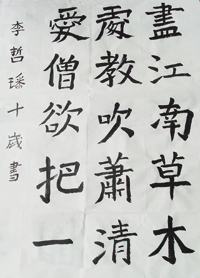 盡江南草木
處教吹蕭清
愛僧欲把一
李哲璠十歲書